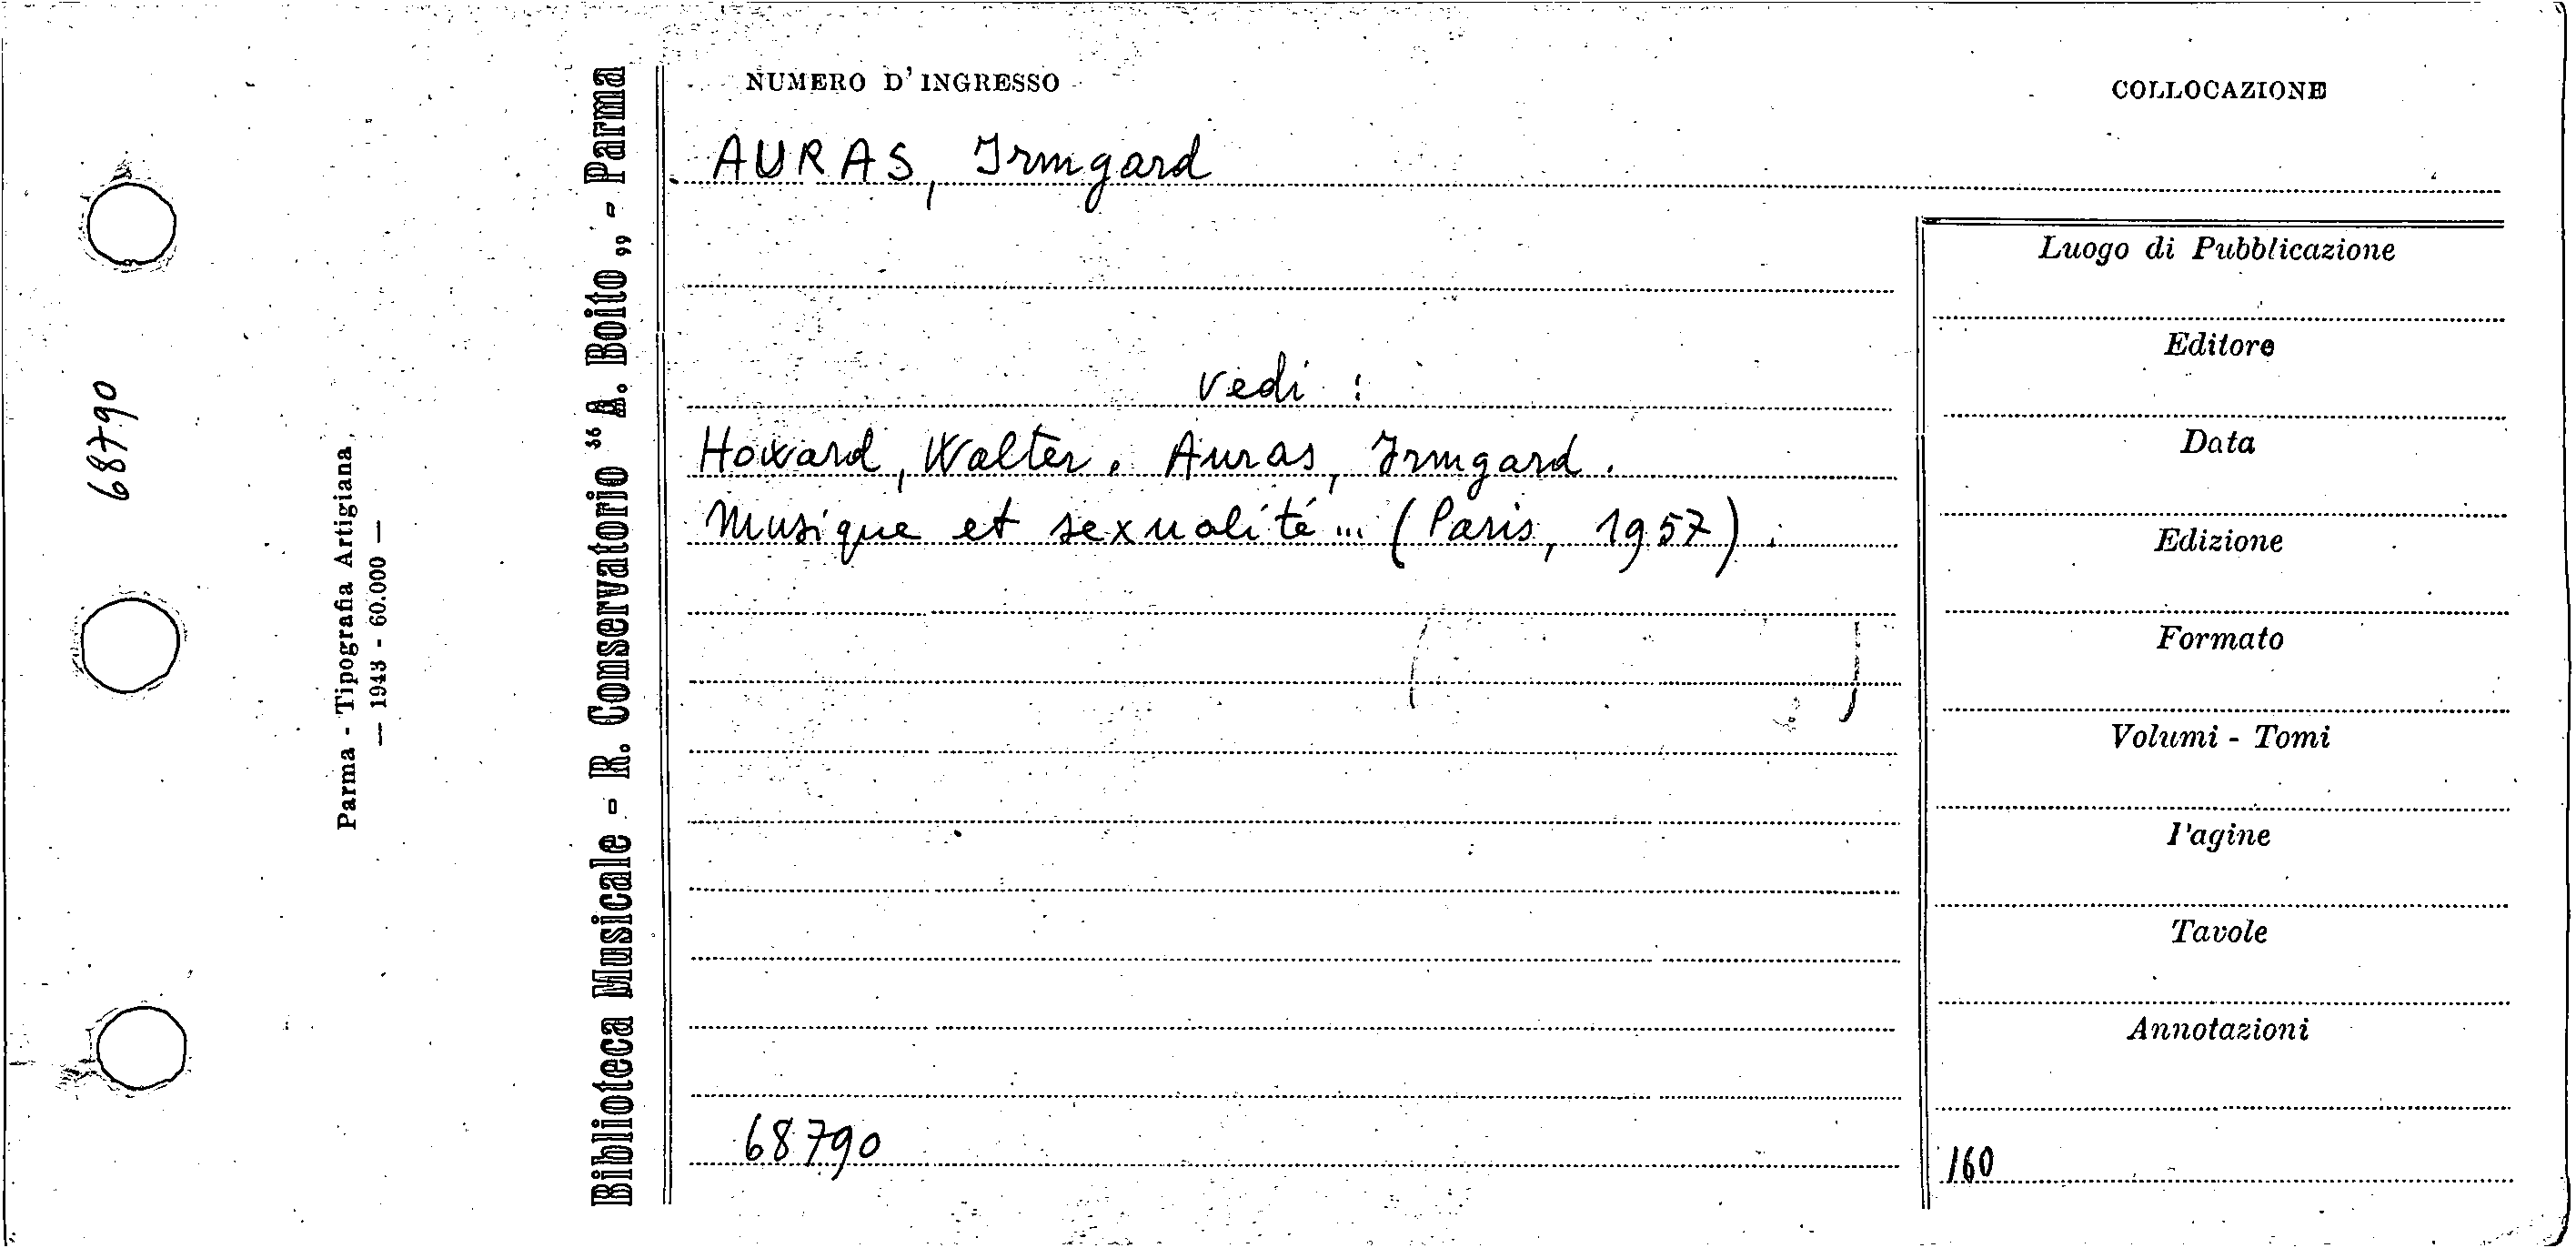 68790
Parma - Tipografia Artigiana
— 1943 - 60.000 —
Biblioteca Musicale - R. Conservatorio "A. Boito„ - Parma
NUMERO D'INGRESSO
COLLOCAZIONE
AURAS, Irmgard
vedi :
Howard, Walter. Auras, Irmgard.
Musique et sexualité ... (Paris, 1957).
68790
Luogo di Pubblicazione
Editore
Data
Edizione
Formato
Volumi - Tomi
Pagine
Tavole
Annotazioni
160